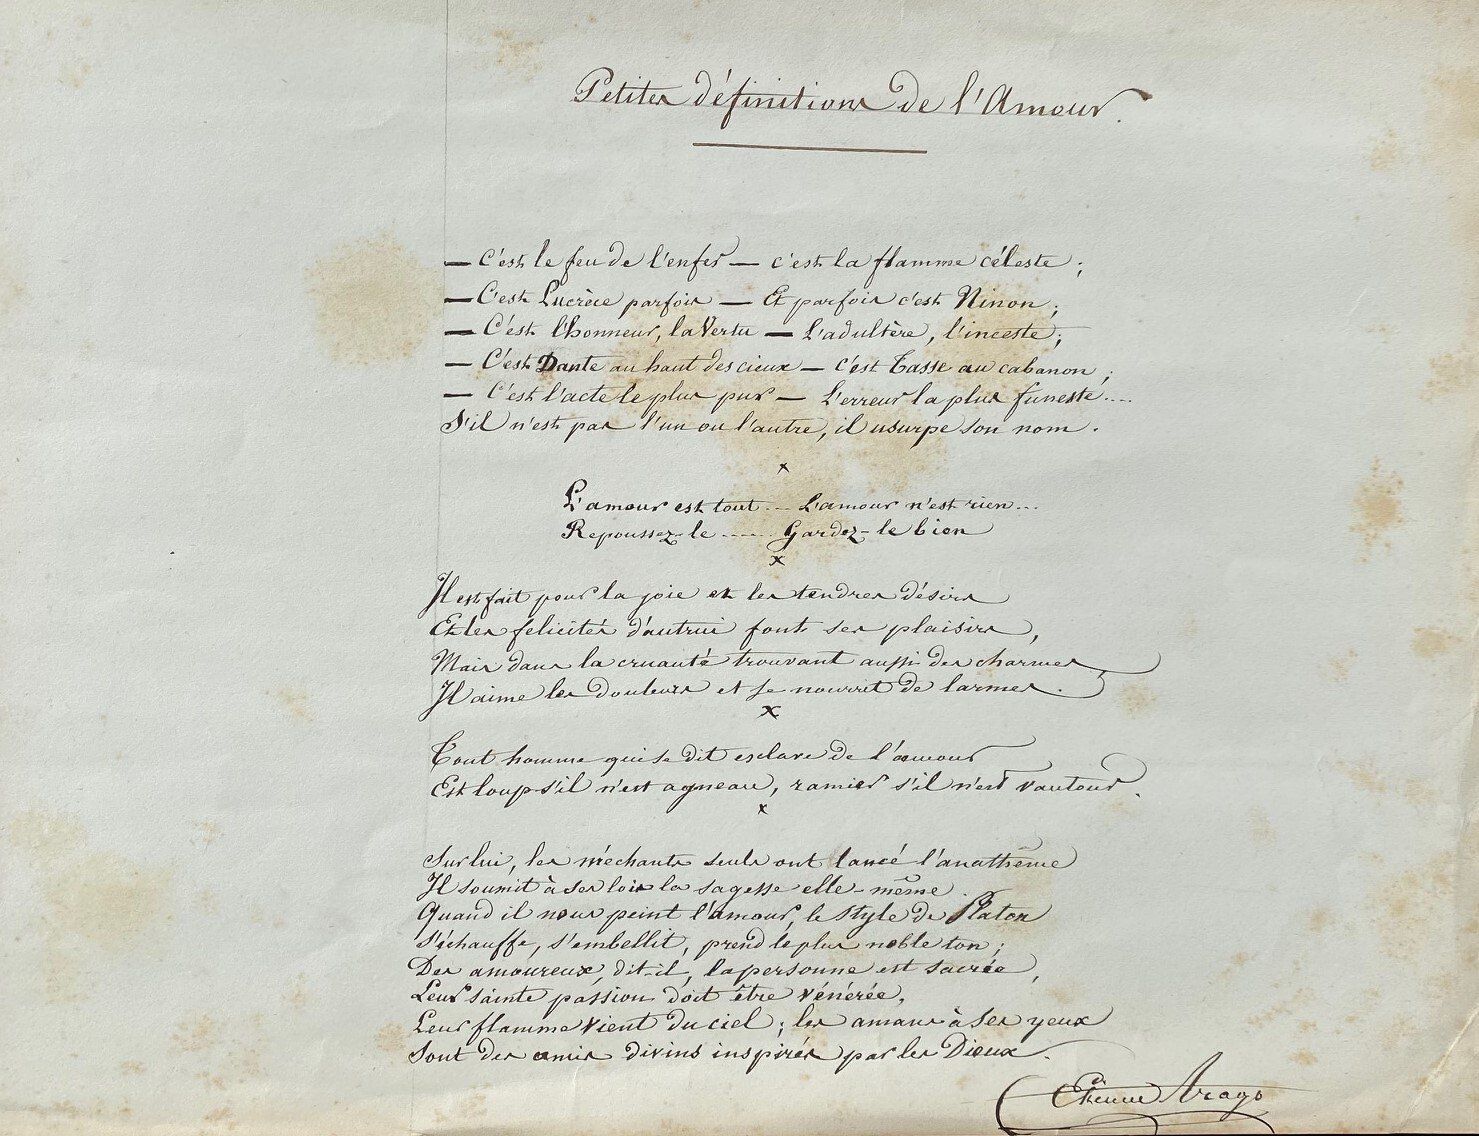 Petites définitions de l'Amour.
— C'est le feu de l'enfer — c'est la flamme céleste ;
— C'est Lucrèce parfois — Et parfois c'est Ninon ;
— C'est l'honneur, la Vertu — L'adultère, l'inceste ;
— C'est Dante au haut des cieux — c'est Tasse au cabanon ;
— C'est l'acte le plus pur — L'erreur la plus funeste....
S'il n'est pas l'un ou l'autre, il usurpe son nom.
x
L'amour est tout... L'amour n'est rien...
Repoussez-le ..... Gardez-le bien
x
Il est fait pour la joie et les tendres désirs
Et les felicités d'autrui font ses plaisirs,
Mais dans la cruauté trouvant aussi des charmes
Il aime les douleurs et se nourrit de larmes.
x
Tout homme qui se dit esclave de l'amour
Est loup s'il n'est agneau, ramier s'il n'est vautour.
x
Sur lui, les méchants seuls ont lancé l'anathême
Il soumit à ses lois la sagesse elle-même
Quand il nous peint l'amour, le style de Platon
S'échauffe, s'embellit, prend le plus noble ton ;
Des amoureux, dit-il, la personne est sacrée,
Leur sainte passion doit être vénérée,
Leur flamme vient du ciel ; les amans à ses yeux
Sont des amis divins inspirés par les Dieux.
Etienne Arago